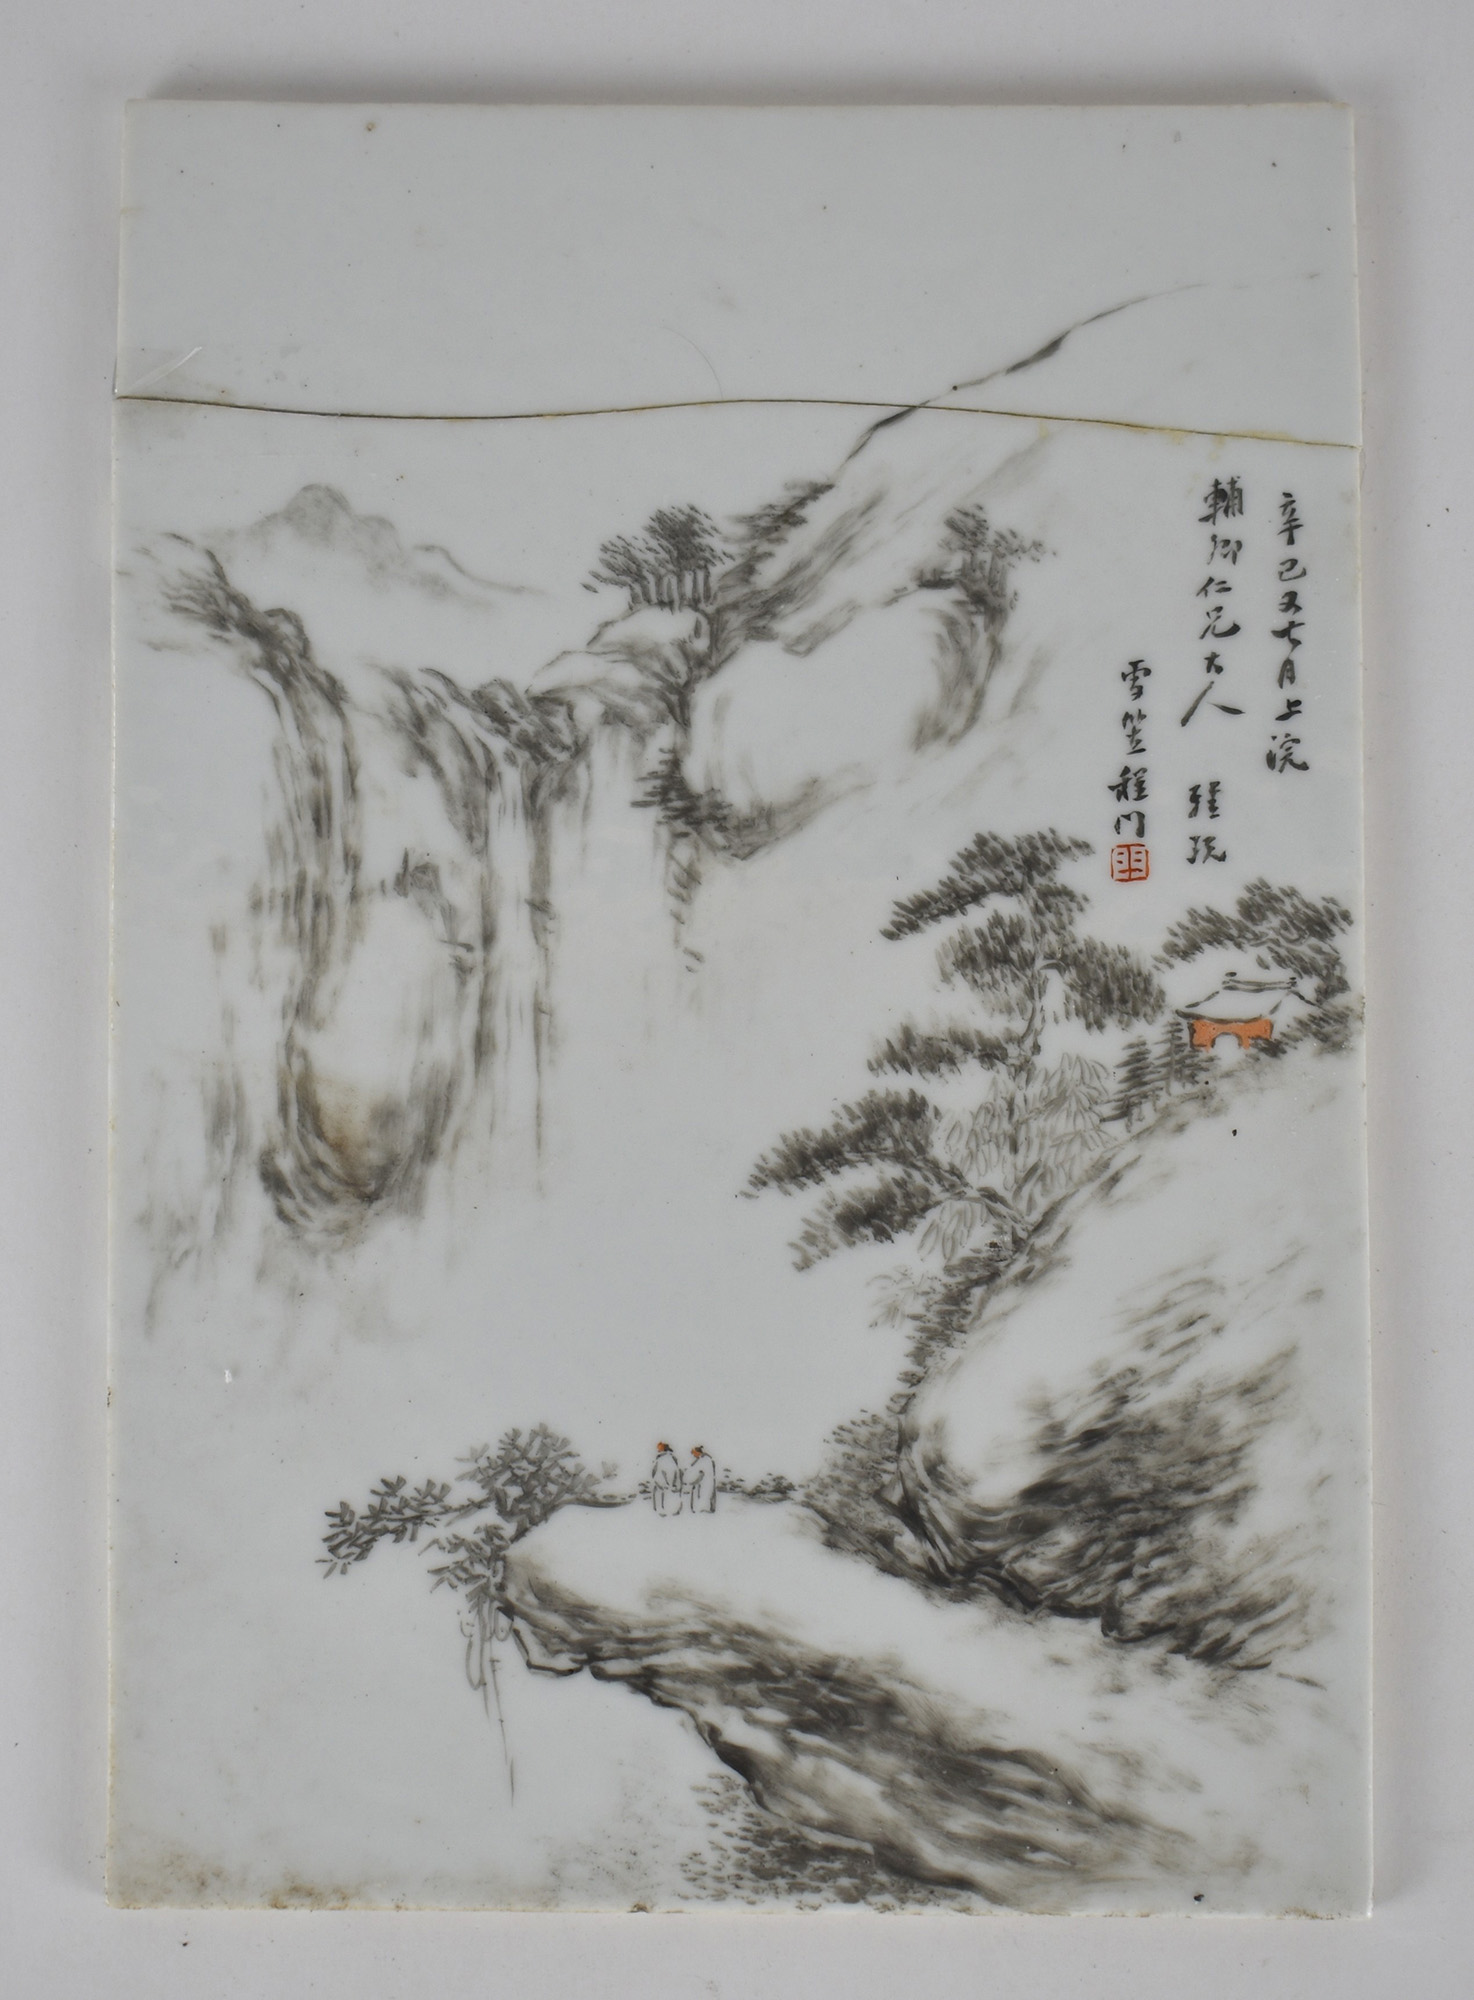 辛巳又七月上浣
輔卿仁兄大人 雅玩
雪笠程門
門